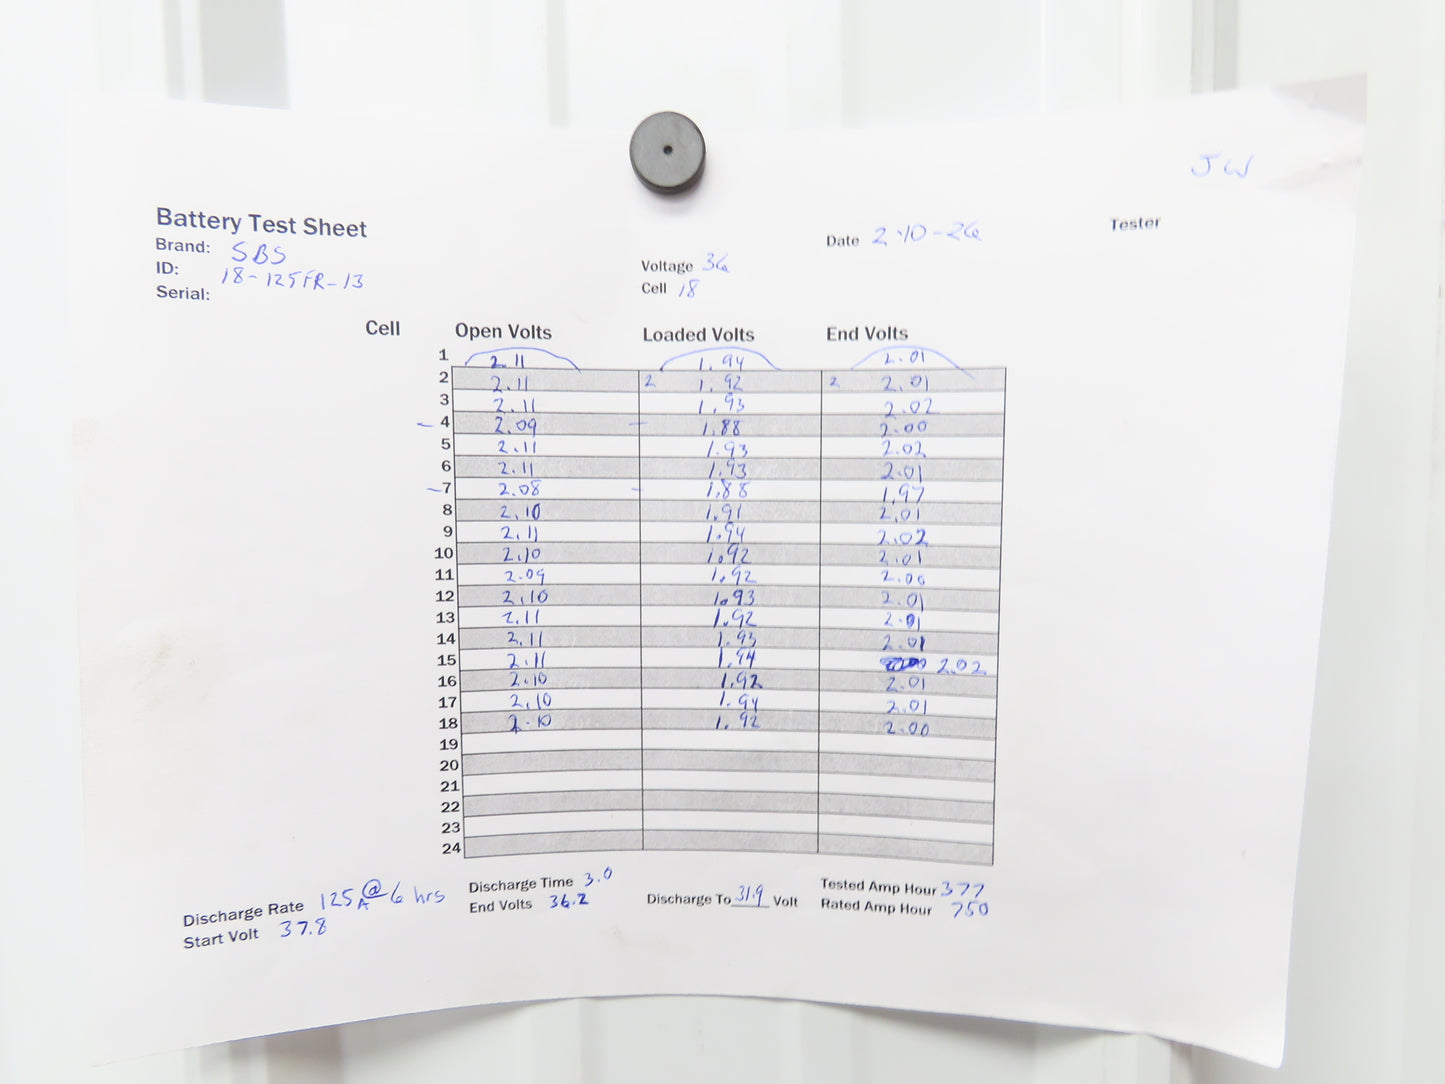 JW
Battery Test Sheet
Brand: SBS
ID: 18-125FR-13
Serial:
Voltage 36
Cell 18
Date 2-10-26
Tester
Cell Open Volts Loaded Volts End Volts
1 2.11 1.94 2.01
2 2.11 2 1.92 2 2.01
3 2.11 1.93 2.02
- 4 2.09 - 1.88 2.00
5 2.11 1.93 2.02
6 2.11 1.93 2.01
- 7 2.08 - 1.88 1.97
8 2.10 1.91 2.01
9 2.11 1.94 2.02
10 2.10 1.92 2.01
11 2.09 1.92 2.00
12 2.10 1.93 2.01
13 2.11 1.92 2.01
14 2.11 1.93 2.01
15 2.11 1.94 2.02
16 2.10 1.92 2.01
17 2.10 1.94 2.01
18 2.10 1.92 2.00
19
20
21
22
23
24
Discharge Rate 125A @ 6 hrs
Start Volt 37.8
Discharge Time 3.0
End Volts 36.2
Discharge To 31.9 Volt
Tested Amp Hour 377
Rated Amp Hour 750